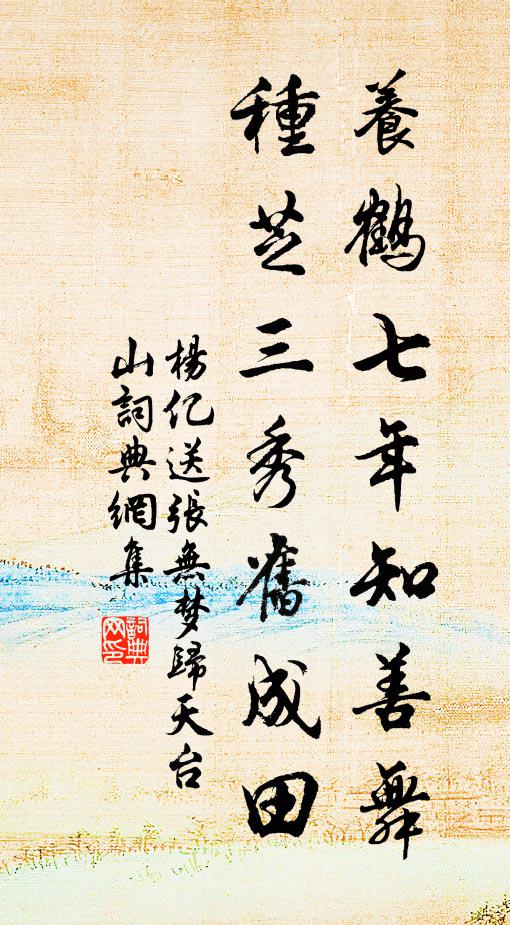 養鶴七年知善舞
種芝三秀舊成田
楊亿送張無梦歸天台
山詞典網集
詞典
网印